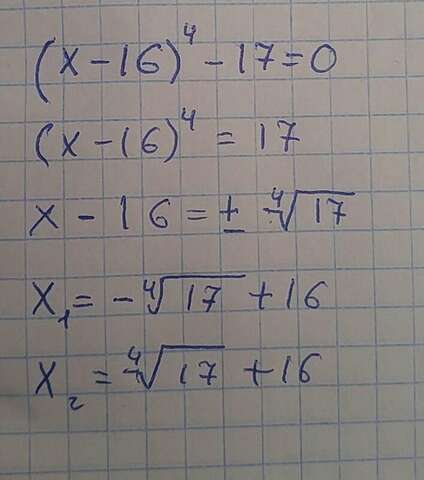 (x-16)⁴-17=0
(x-16)⁴=17
x-16=±⁴√17
x₁=-⁴√17+16
x₂=⁴√17+16